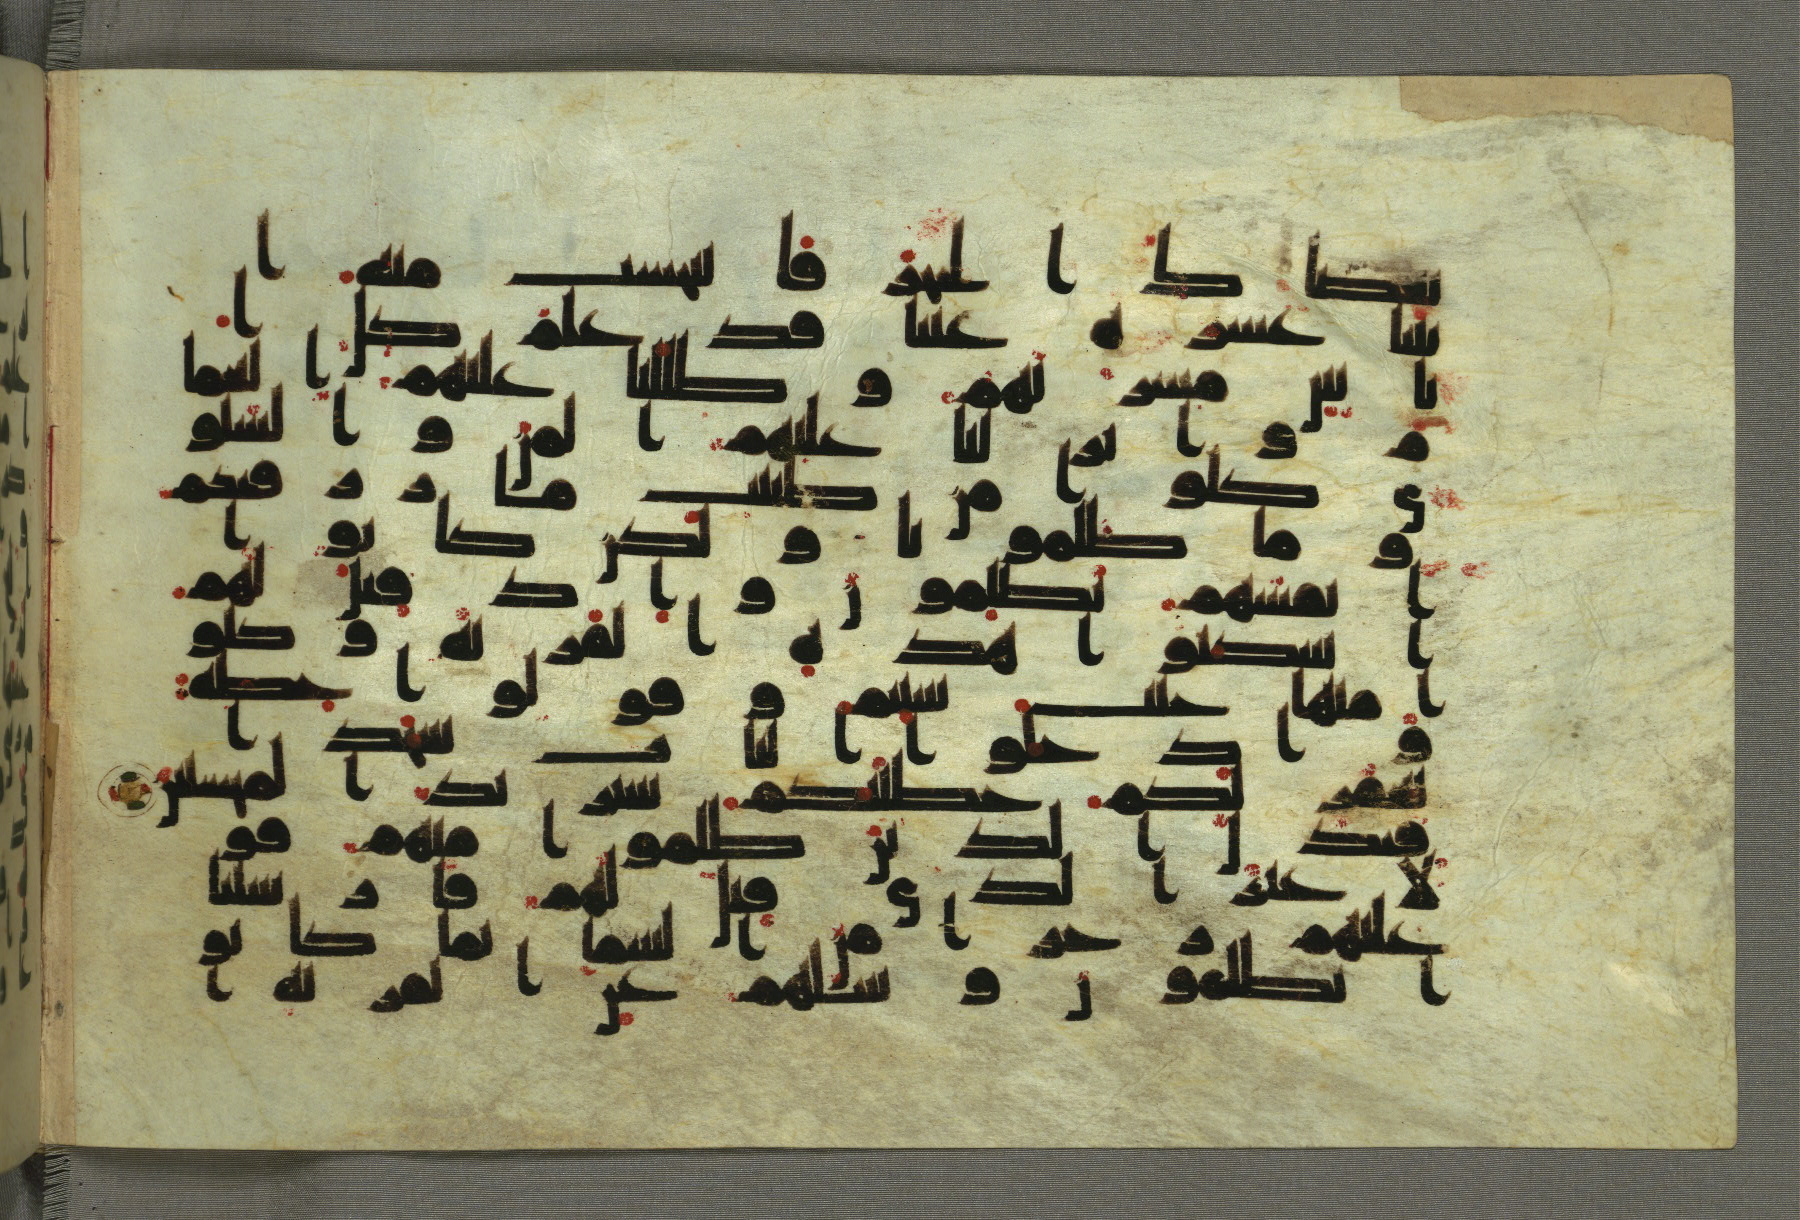 بعصاك الحجر فانبجست منه ا
ثنتا عشرة عينا قد علم كل ا
ناس مشربهم وظللنا عليهم الغما
م وانزلنا عليهم المن والسلو
ى كلوا من طيبت ما رزقنكم
وما ظلمونا ولكن كانوا
انفسهم يظلمون واذ قيل لهم
اسكنوا هذه القرية وكلو
ا منها حيث شئتم وقولوا حطة
وادخلوا الباب سجدا
نغفر لكم خطيتكم سنزيد المحسنين
فبدل الذين ظلموا منهم قو
لا غير الذي قيل لهم فارسلنا
عليهم رجزا من السما بما كانو
ا يظلمون وسلهم عن القرية ا